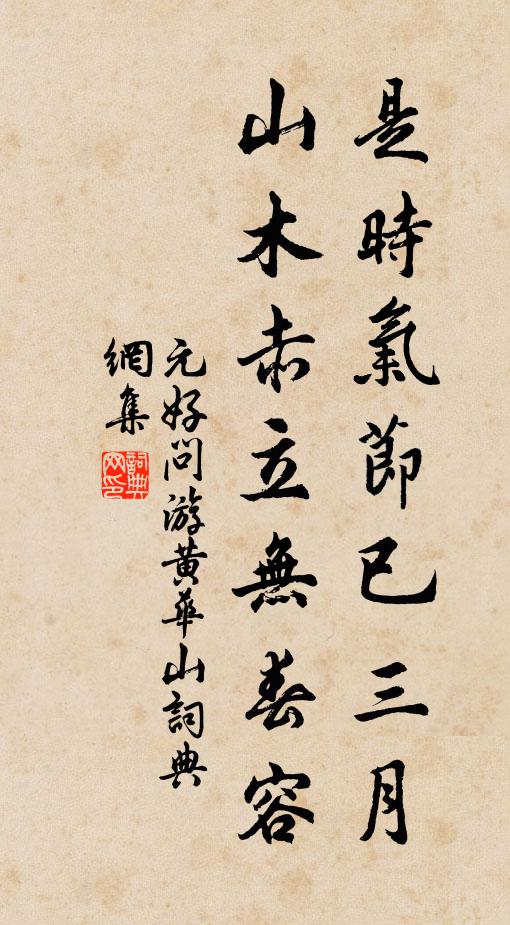 是時氣節已三月
山木赤立無春容
元好問游黃華山詞典
網集
詞典網印